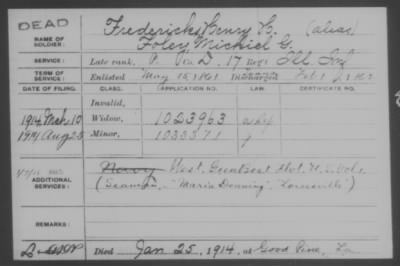 DEAD
NAME OF SOLDIER:
Fredericks, Henry C. (alias)
Foley, Michiel G.
SERVICE: Late rank, P. Co. D, 17 Reg't Ill. Inf
TERM OF SERVICE: Enlisted May 15, 1861 Discharged Feb 1
DATE OF FILING. CLASS. APPLICATION NO. LAW. CERTIFICATE NO.
Invalid,
1914 Mch 10 Widow, 1023963
1914 Aug 25 Minor, 1033371
ADDITIONAL SERVICES:
Navy West. Gunboat Flot.
(Seaman, "Maria Denning," "Louisville")
REMARKS:
Died Jan 25, 1914, at Good Pine, La